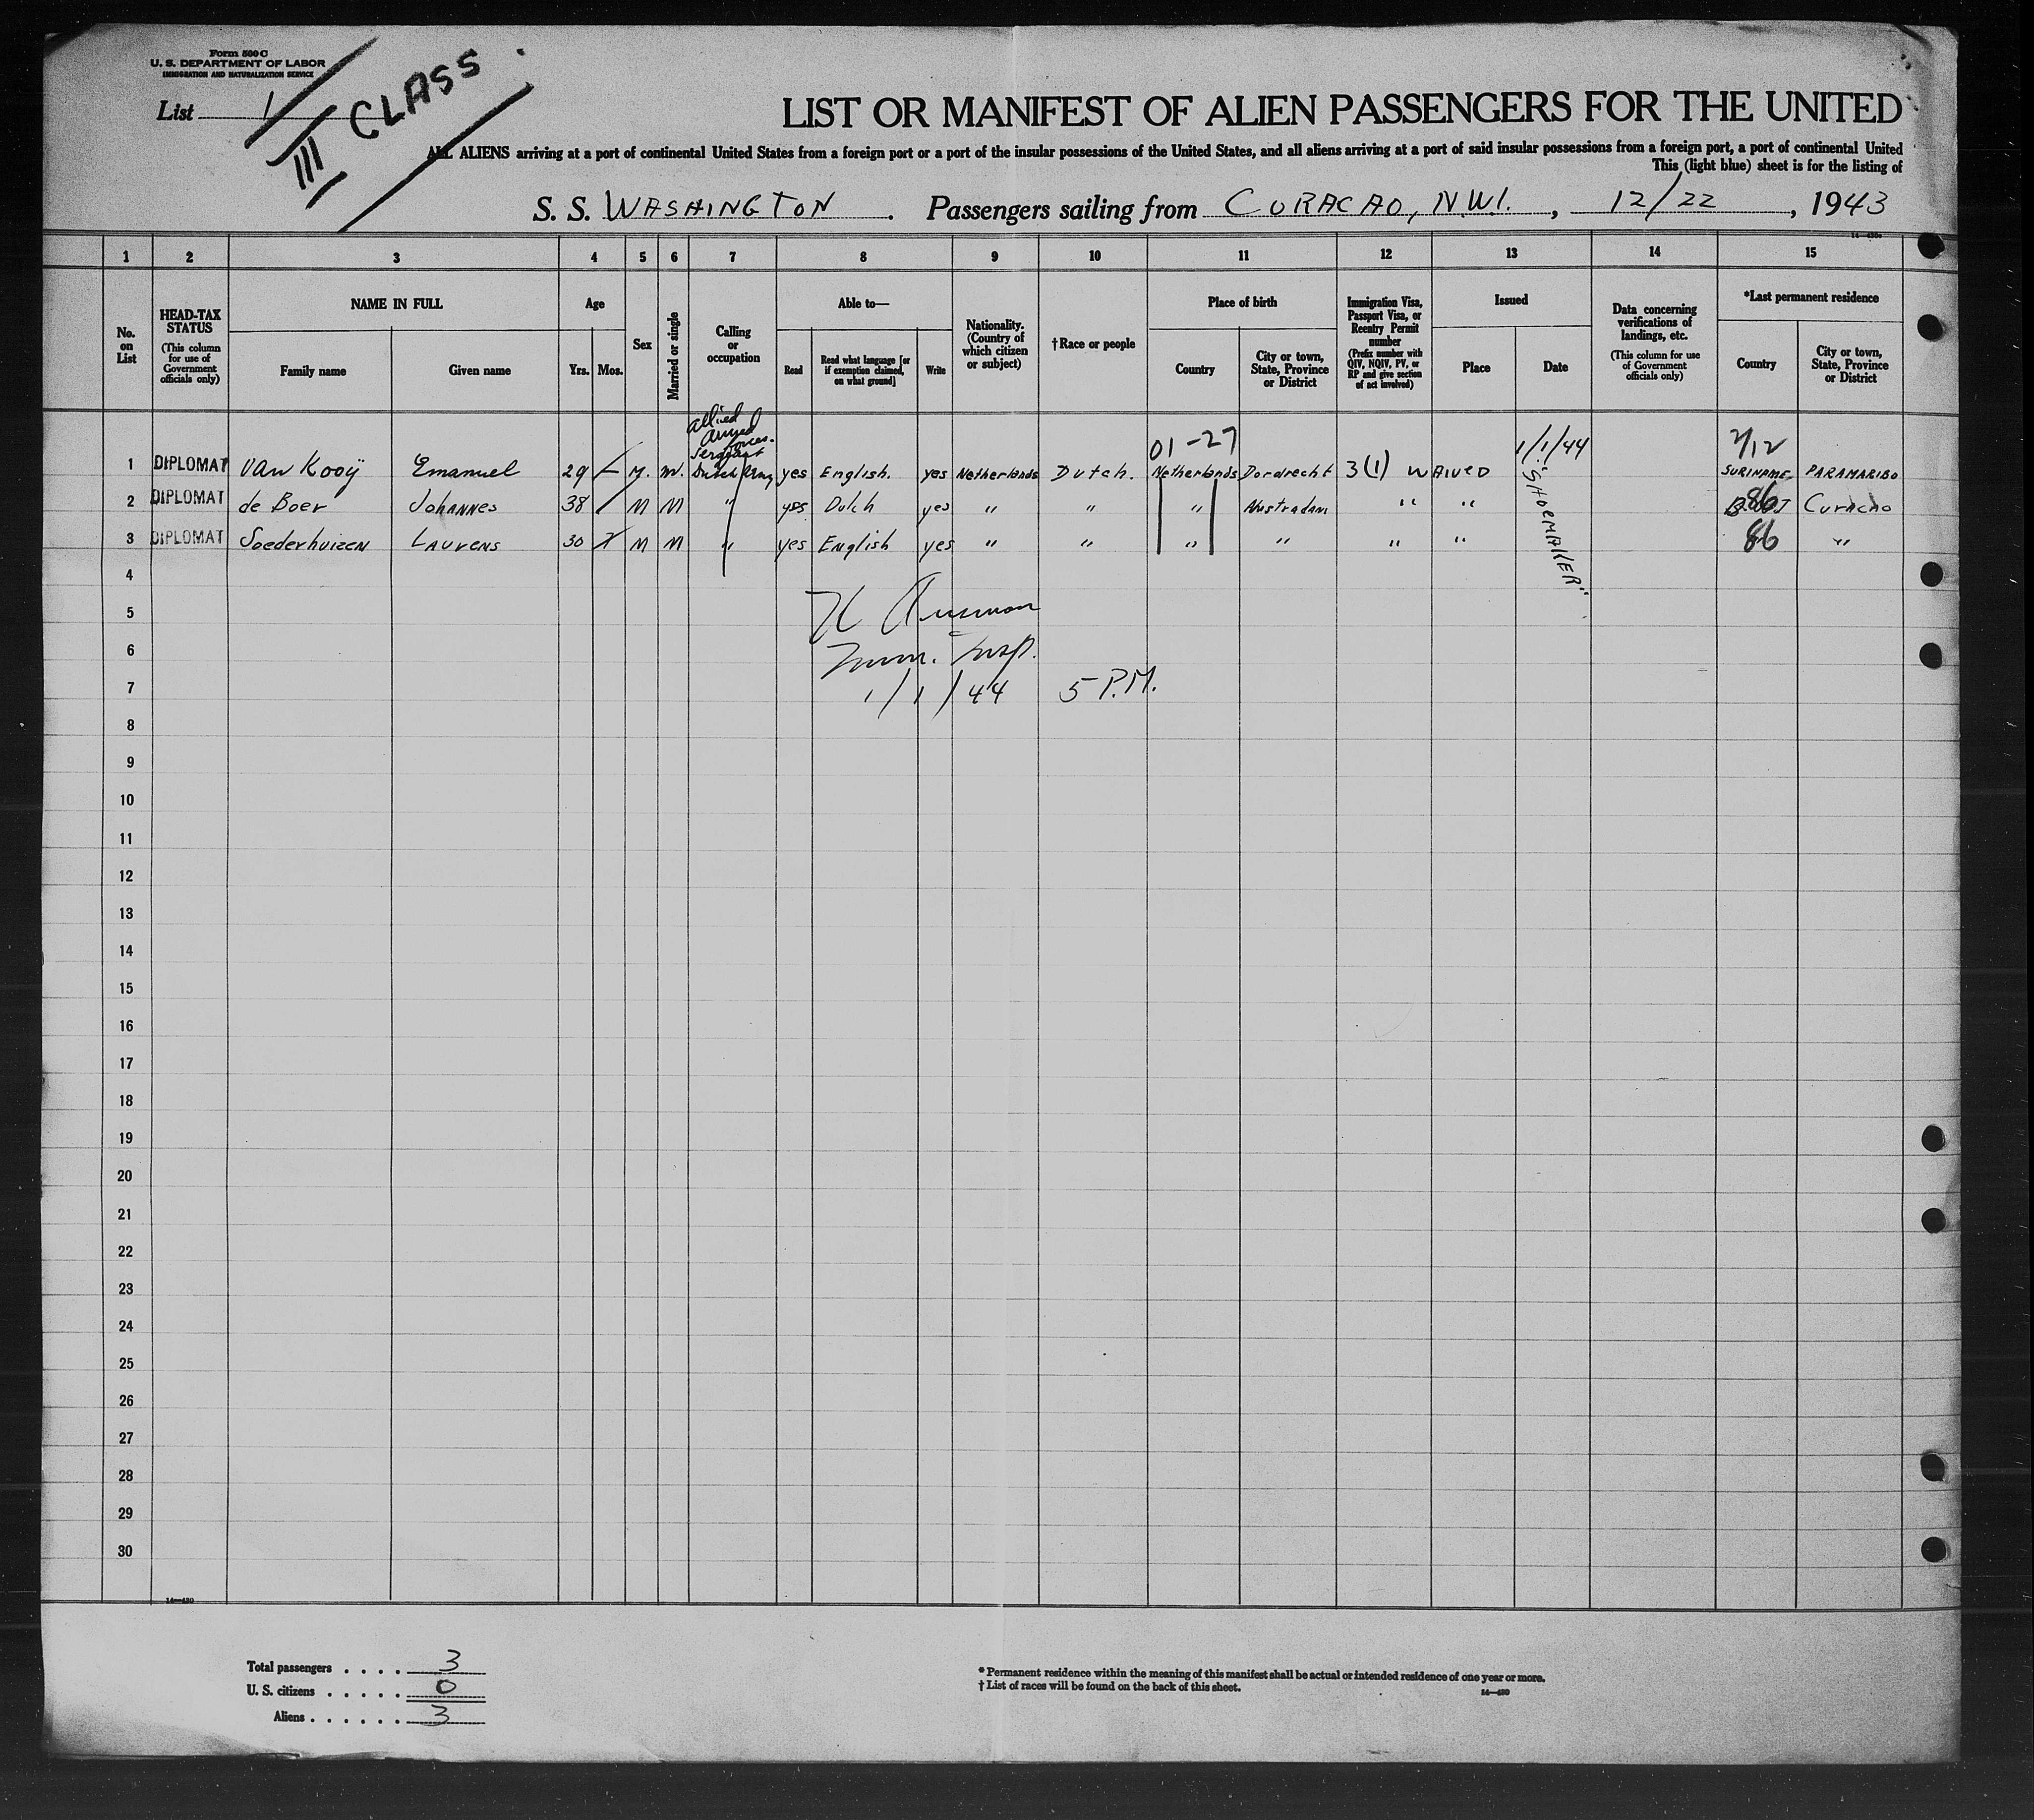 Form 500 C
U. S. DEPARTMENT OF LABOR
IMMIGRATION AND NATURALIZATION SERVICE
List 1
III CLASS.
LIST OR MANIFEST OF ALIEN PASSENGERS FOR THE UNITED
ALL ALIENS arriving at a port of continental United States from a foreign port or a port of the insular possessions of the United States, and all aliens arriving at a port of said insular possessions from a foreign port, a port of continental United
This (light blue) sheet is for the listing of
S. S. WASHINGTON. Passengers sailing from CURACAO, N.W.I., 12/22, 1943
1 2 3 4 5 6 7 8 9 10 11 12 13 14 15
No. on List
HEAD-TAX STATUS (This column for use of Government officials only)
NAME IN FULL
Family name
Given name
Age
Yrs. Mos.
Sex
Married or single
Calling or occupation
Able to—
Read
Read what language [or if exemption claimed, on what ground]
Write
Nationality. (Country of which citizen or subject)
†Race or people
Place of birth
Country
City or town, State, Province or District
Immigration Visa, Passport Visa, or Reentry Permit number (Prefix number with QIV, NQIV, PV, or RP and give section of act involved)
Issued
Place
Date
Data concerning verifications of landings, etc. (This column for use of Government officials only)
*Last permanent residence
Country
City or town, State, Province or District
allied armed forces.
01-27 1/1/44
1 DIPLOMAT van Kooÿ Emanuel 29 M. M. Sergeant Dutch Army yes English. yes Netherlands Dutch. Netherlands Dordrecht 3(1) WAIVED SURINAME PARAMARIBO
2 DIPLOMAT de Boer JOHANNES 38 M M " yes Dutch yes " " " Amstradam " " 86 Curacao
3 DIPLOMAT Soederhuizen LAURENS 30 M M " yes English yes " " " " " " 86 "
"SHOEMAKER"
4
5
6 Imm. Insp.
7 1/1/44 5 P.M.
8
9
10
11
12
13
14
15
16
17
18
19
20
21
22
23
24
25
26
27
28
29
30
14—430
Total passengers . . . . 3
U. S. citizens . . . . . 0
Aliens . . . . . . 3
* Permanent residence within the meaning of this manifest shall be actual or intended residence of one year or more.
† List of races will be found on the back of this sheet.
14—430